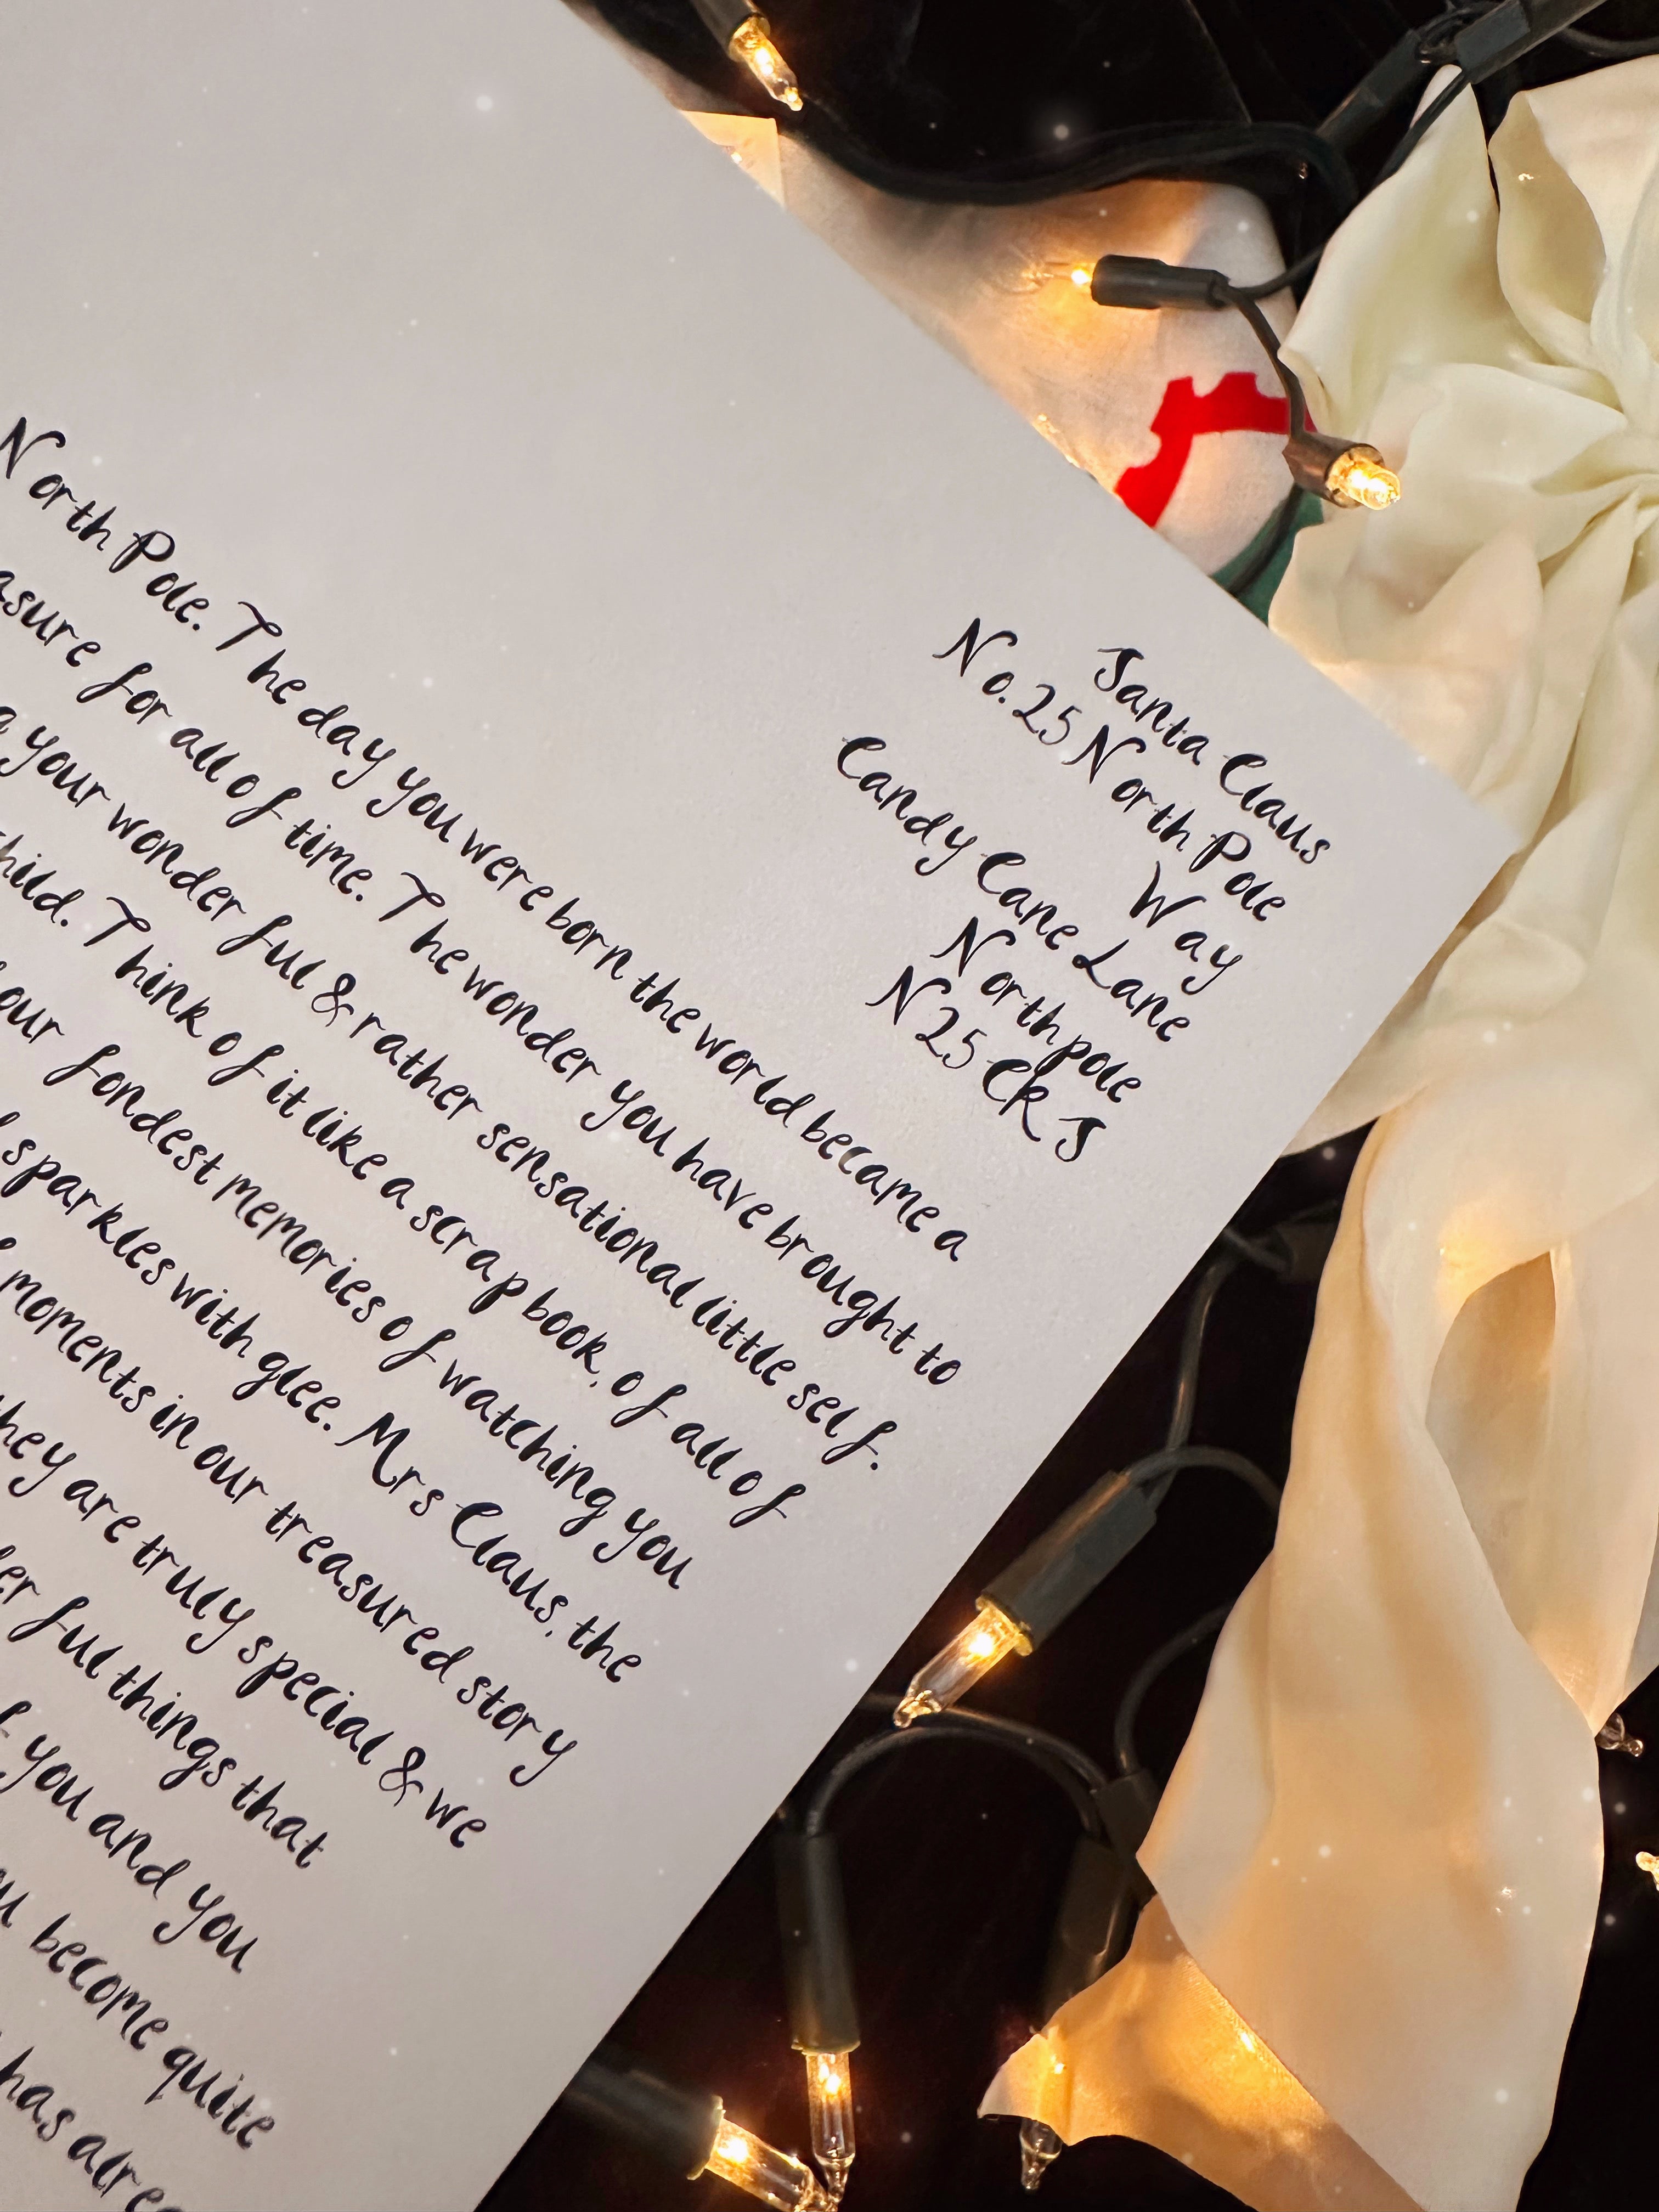 Santa Claus
No. 25 North Pole
Way
Candy Cane Lane
Northpole
N25 CRS
North Pole. The day you were born the world became a
for all of time. The wonder you have brought to
your wonderful & rather sensational little self.
Think of it like a scrapbook, of all of
our fondest memories of watching you
sparkles with glee. Mrs Claus, the
moments in our treasured story
they are truly special & we
things that
you and you
become quite
has